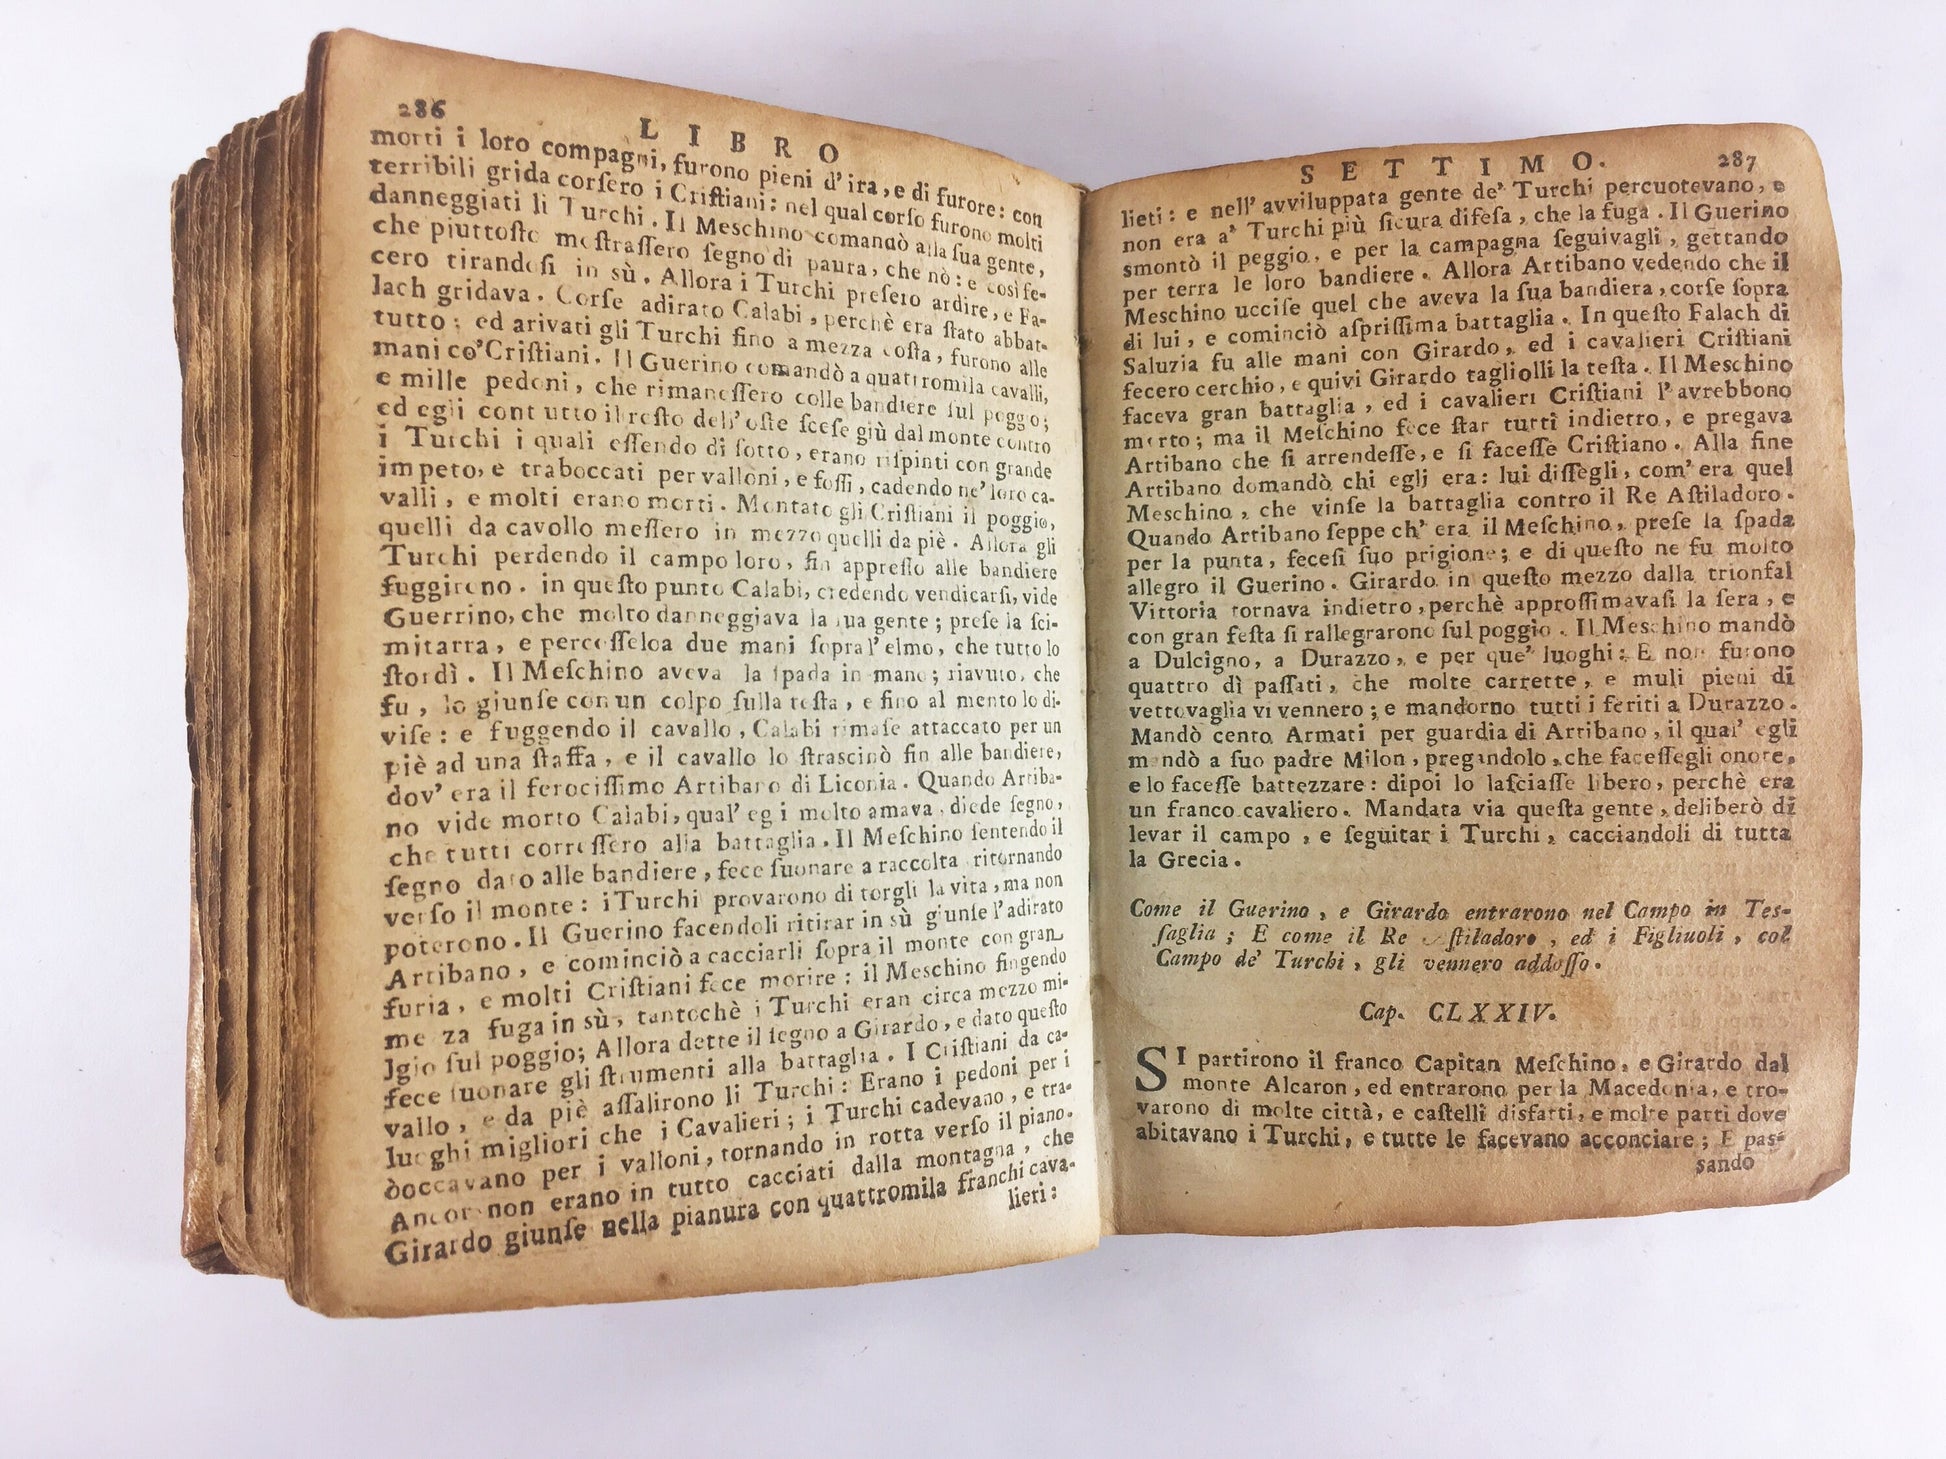 286
LIBRO
morti i loro compagni, furono pieni d' ira, e di furore: con
terribili grida corſero i Criſtiani: nel qual corſo furono molti
danneggiati li Turchi. Il Meſchino comandò alla ſua gente,
che piuttoſto moſtraſſero ſegno di paura, che nò: e così fe-
cero tirandoſi in sù. Allora i Turchi preſero ardire, e Fa-
lach gridava. Corſe adirato Calabi, perchè era ſtato abbat-
tutto; ed arivati gli Turchi fino a mezza coſta, furono alle
mani co' Criſtiani. Il Guerino comandò a quattromila cavalli,
e mille pedoni, che rimaneſſero colle bandiere ſul poggio;
ed egli cont utto il reſto dell' oſte ſceſe giù dal monte contro
i Turchi i quali eſſendo di ſotto, erano riſpinti con grande
impeto, e traboccati per valloni, e foſſi, cadendo ne' loro ca-
valli, e molti erano morti. Montato gli Criſtiani il poggio,
quelli da cavollo meſſero in mezzo quelli da piè. Allora gli
Turchi perdendo il campo loro, fin appreſſo alle bandiere
fuggirono. in queſto punto Calabi, credendo vendicarſi, vide
Guerrino, che molto danneggiava la ſua gente; preſe la ſci-
mitarra, e percoſſeloa due mani ſopra l' elmo, che tutto lo
ſtordì. Il Meſchino aveva la ſpada in mano; riavuto, che
fu, lo giunſe con un colpo ſulla teſta, e fino al mento lo di-
viſe: e fuggendo il cavallo, Calabi rimaſe attaccato per un
piè ad una ſtaffa, e il cavallo lo ſtraſcinò fin alle bandiere,
dov' era il ferociſſimo Artibano di Liconia. Quando Artiba-
no vide morto Calabi, qual' egi molto amava, diede ſegno,
che tutti correſſero alla battaglia. Il Meſchino ſentendo il
ſegno dato alle bandiere, fece ſuonare a raccolta ritornando
verſo il monte: i Turchi provarono di torgli la vita, ma non
poterono. Il Guerino facendoli ritirar in sù giunſe l' adirato
Artibano, e cominciò a cacciarli ſopra il monte con gran
furia, e molti Criſtiani fece morire: il Meſchino fingendo
me za fuga in sù, tantochè i Turchi eran circa mezzo mi-
lgio ſul poggio; Allora dette il ſegno a Girardo, e dato queſto
fece ſuonare gli ſtrumenti alla battaglia. I Criſtiani da ca-
vallo, e da piè aſſalirono li Turchi: Erano i pedoni per i
luoghi migliori che i Cavalieri; i Turchi cadevano, e tra-
boccavano per i valloni, tornando in rotta verſo il piano.
Ancor non erano in tutto cacciati dalla montagna, che
Girardo giunſe nella pianura con quattromila franchi cava-
lieri:
SETTIMO. 287
lieti: e nell' avviluppata gente de' Turchi percuotevano, e
non era a' Turchi più ſicura difeſa, che la fuga. Il Guerino
smontò il peggio, e per la campagna ſeguivagli, gettando
per terra le loro bandiere. Allora Artibano vedendo che il
Meſchino ucciſe quel che aveva la ſua bandiera, corſe ſopra
di lui, e cominciò aſpriſſima battaglia. In queſto Falach di
Saluzia fu alle mani con Girardo, ed i cavalieri Criſtiani
fecero cerchio, e quivi Girardo tagliolli la teſta. Il Meſchino
faceva gran battaglia, ed i cavalieri Criſtiani l' avrebbono
morto; ma il Meſchino fece ſtar tutti indietro, e pregava
Artibano che ſi arrendeſſe, e ſi faceſſe Criſtiano. Alla fine
Artibano domandò chi egli era: lui diſſegli, com' era quel
Meschino, che vinſe la battaglia contro il Re Aſtiladoro.
Quando Artibano ſeppe ch' era il Meſchino, preſe la ſpada
per la punta, feceſi ſuo prigione; e di queſto ne fu molto
allegro il Guerino. Girardo in queſto mezzo dalla trionfal
Vittoria tornava indietro, perchè approſſimavaſi la ſera, e
con gran feſta ſi rallegrarono ſul poggio. Il Meschino mandò
a Dulcigno, a Durazzo, e per que' luoghi: E non furono
quattro dì paſſati, che molte carrette, e muli pieni di
vettovaglia vi vennero; e mandorno tutti i feriti a Durazzo.
Mandò cento Armati per guardia di Artibano, il qual' egli
mandò a ſuo padre Milon, pregandolo, che faceſſegli onore,
e lo faceſſe battezzare: dipoi lo laſciaſſe libero, perchè era
un franco cavaliero. Mandata via queſta gente, deliberò di
levar il campo, e ſeguitar i Turchi, cacciandoli di tutta
la Grecia.
Come il Guerino, e Girardo entrarono nel Campo in Tes-
ſaglia; E come il Re Aſtiladoro, ed i Figliuoli, col
Campo de' Turchi, gli vennero addoſſo.
Cap. CLXXIV.
SI partirono il franco Capitan Meſchino, e Girardo dal
monte Alcaron, ed entrarono per la Macedonia, e tro-
varono di molte città, e caſtelli disfatti, e molte parti dove
abitavano i Turchi, e tutte le facevano acconciare; E pas-
sando